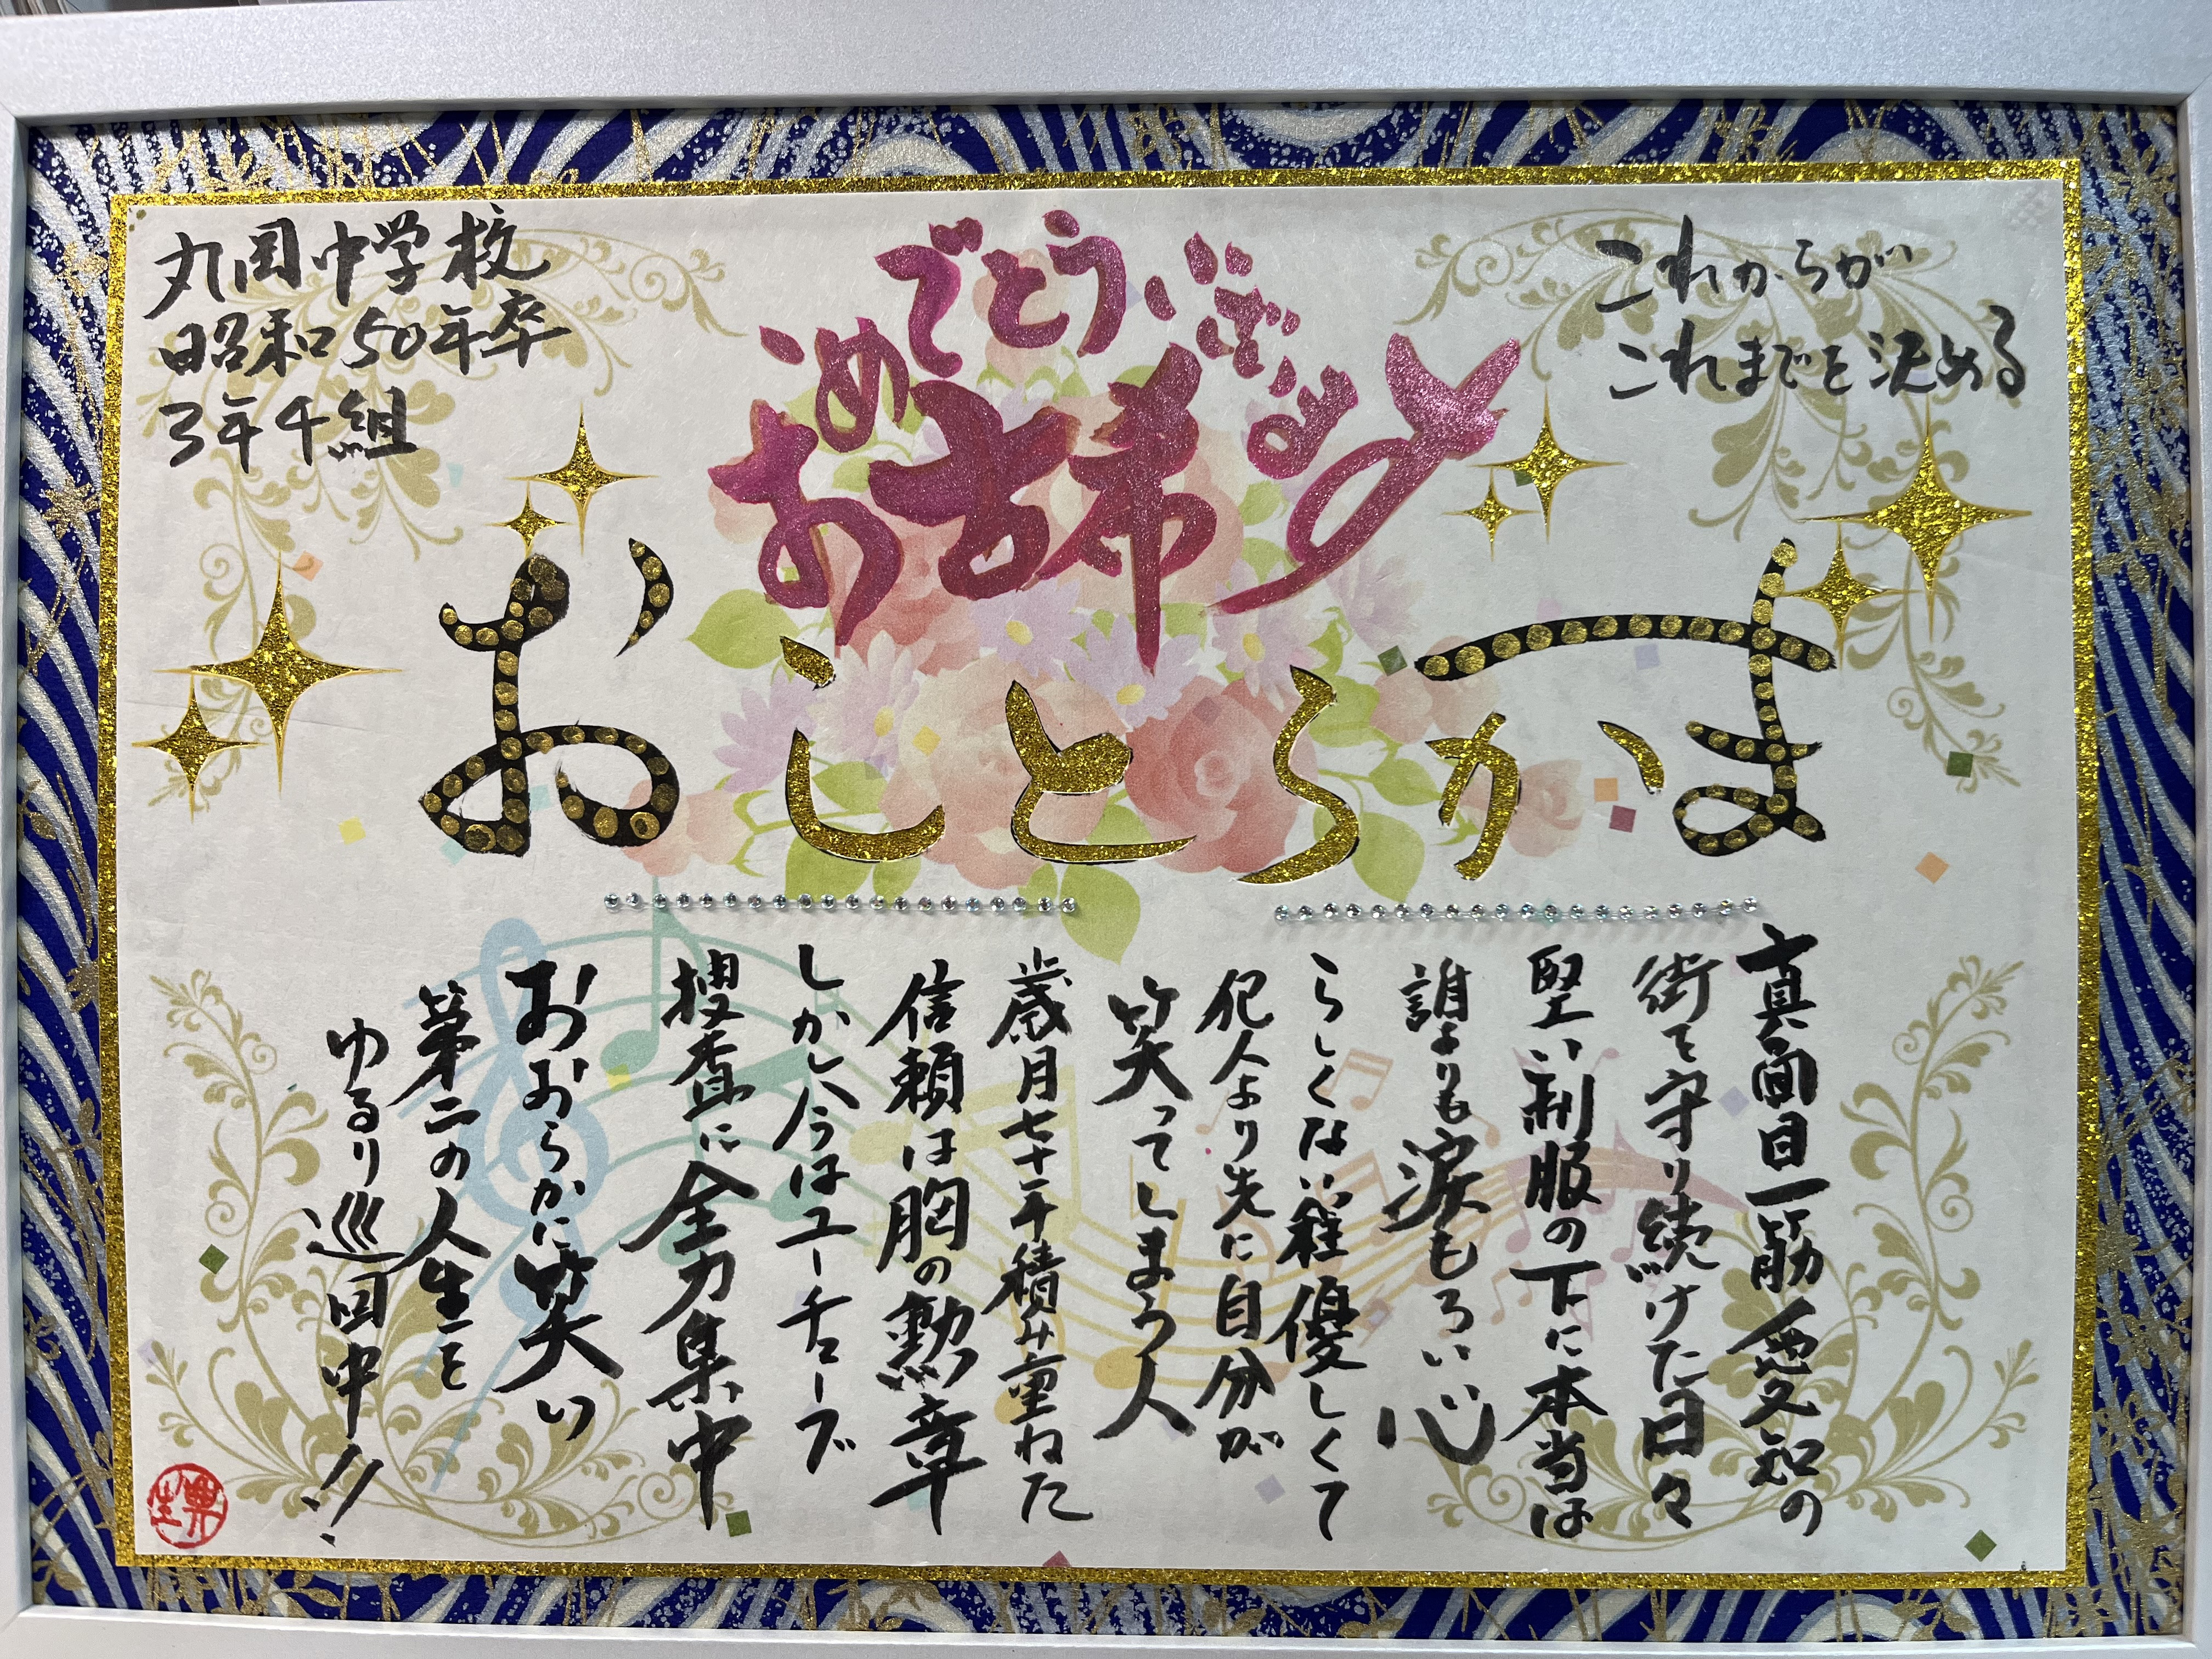 丸岡中学校
昭和50年卒
3年4組
これからが
これまでを決める
お古希
おめでとうございます
おしとらかま
真面目一筋愛知の
街を守り続けた日々
堅い制服の下に本当は
誰よりも涙もろい心
らしくない程優しくて
犯人より先に自分が
笑ってしまう人
歳月七十年積み重ねた
信頼は胸の勲章
しかし今はユーチューブ
捜査に全力集中
おおらかに笑い
第二の人生を
ゆるり巡回中!!